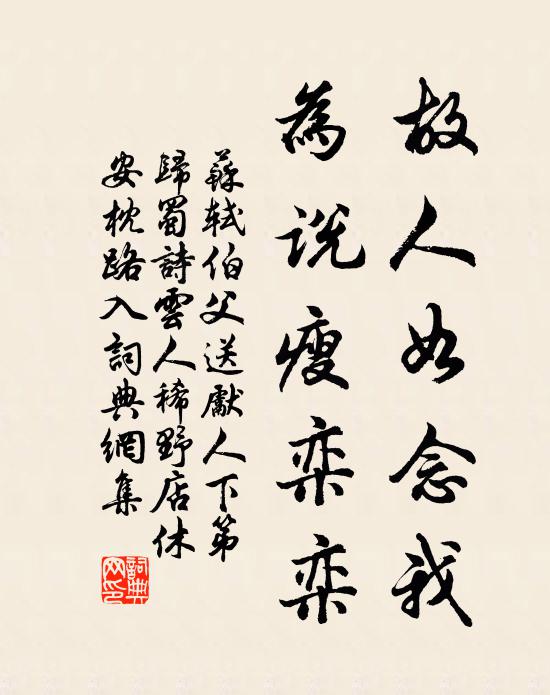 故人如念我
為說瘦栾栾
蘇軾伯父送獻人下第
歸蜀詩雲人稀野店休
安枕路入詞典網集
詞典
网印